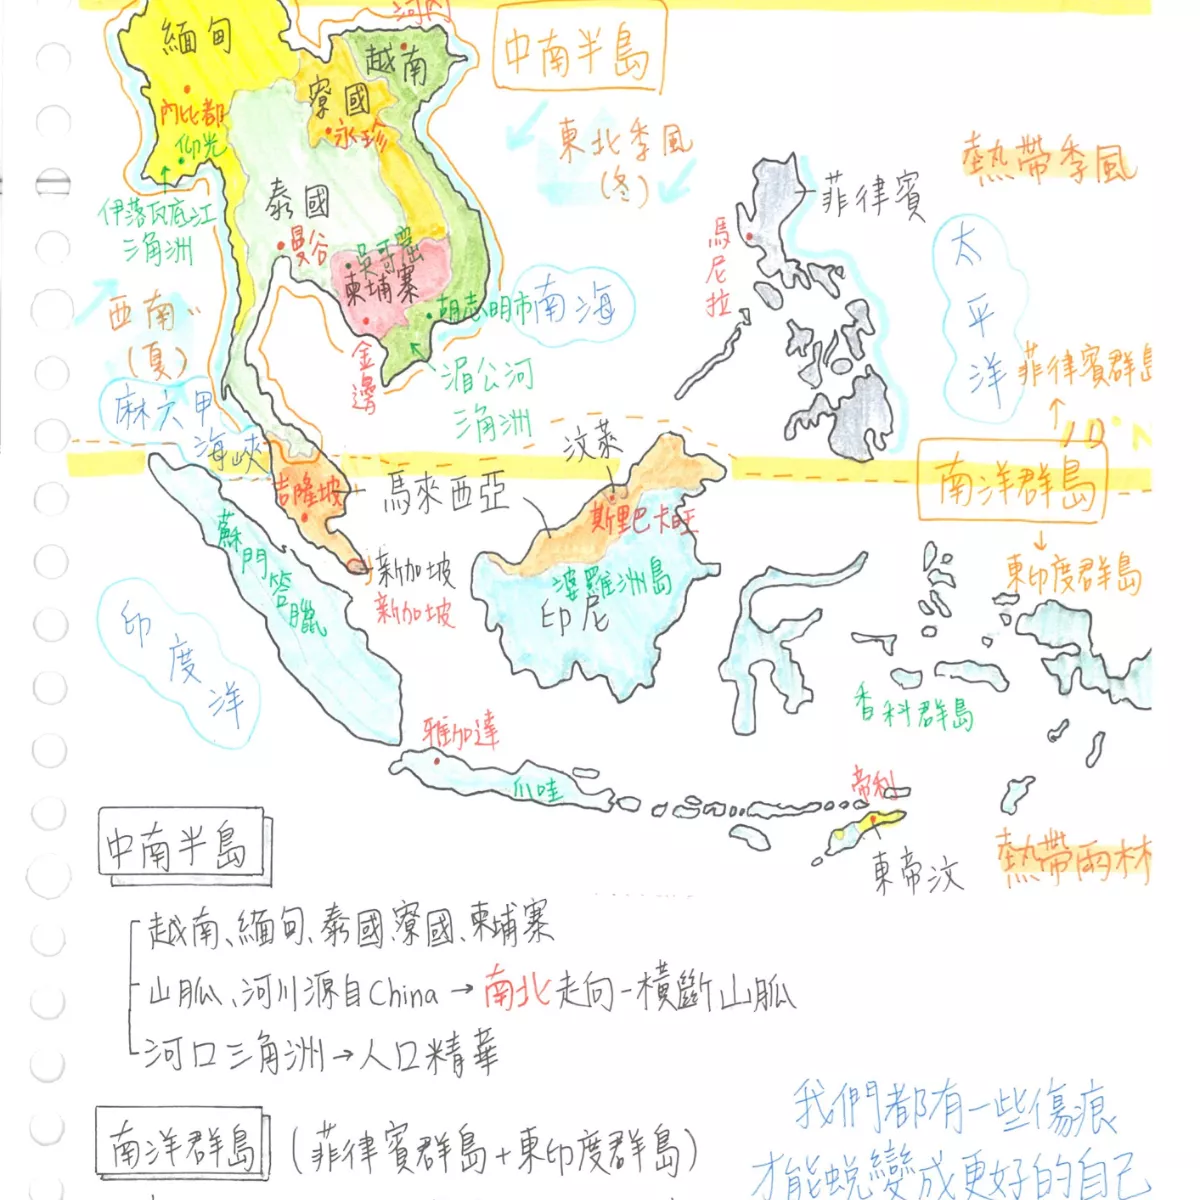 河內
緬甸
越南
中南半島
寮國
內比都
仰光
永珍
東北季風
(冬)
熱帶季風
菲律賓
泰國
伊洛瓦底江
三角洲
曼谷
吳哥窟
柬埔寨
馬尼拉
太平洋
西南
(夏)
胡志明市
南海
金邊
湄公河
三角洲
菲律賓群島
麻六甲
海峽
汶萊
10°N
南洋群島
吉隆坡
馬來西亞
斯里巴卡旺
蘇門答臘
新加坡
新加坡
婆羅洲島
印尼
東印度群島
印度洋
香料群島
雅加達
爪哇
帝利
東帝汶
熱帶雨林
中南半島
越南、緬甸、泰國、寮國、柬埔寨
山脈、河川源自China→南北走向-橫斷山脈
河口三角洲→人口精華
南洋群島 (菲律賓群島+東印度群島)
我們都有一些傷痕
才能蛻變成更好的自己